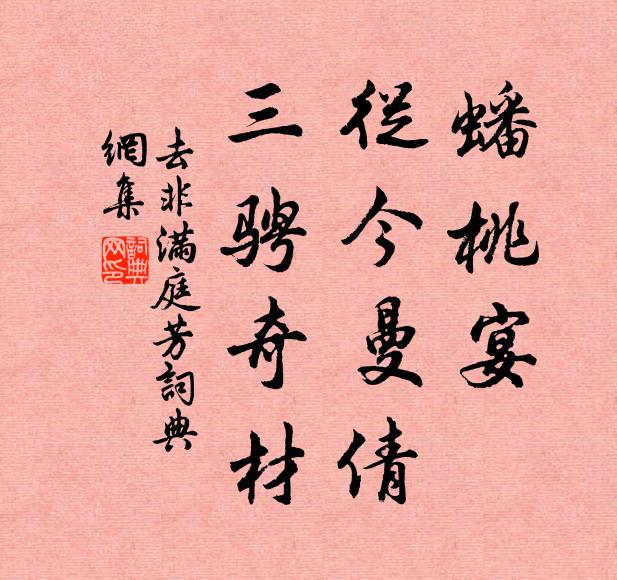 蟠桃宴
從今曼倩
三骋奇材
去非滿庭芳詞典
網集
詞典網印